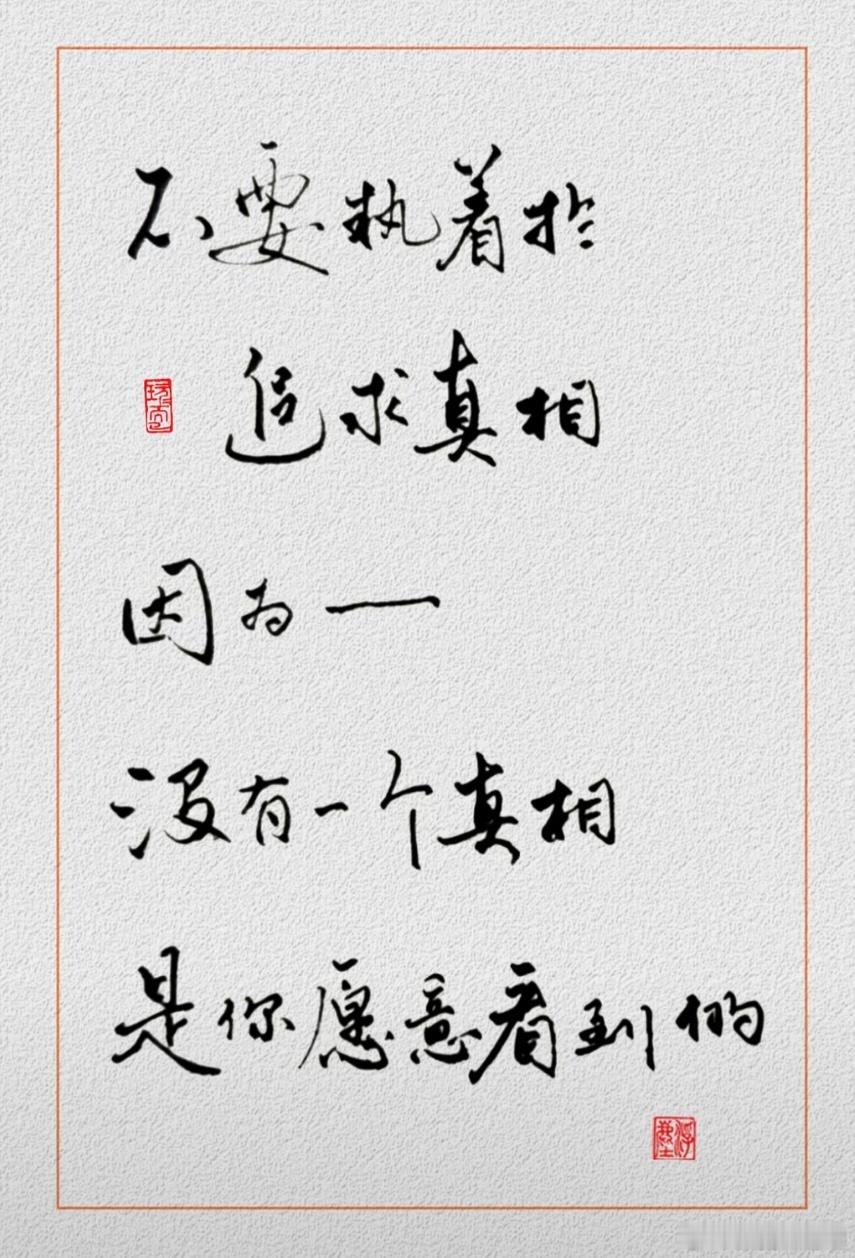 不要执着於
追求真相
因为一
没有一个真相
是你愿意看到的